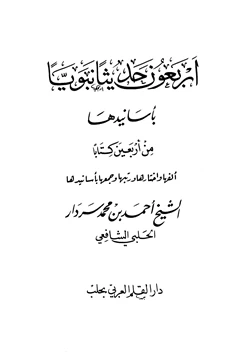 أربعون حديثا نبويا
بأسانيدها
من أربعين كتابا
ألفها واختارها ورتبها وجمعها بأسانيدها
الشيخ أحمد بن محمد سردار
الحلبي الشافعي
دار القلم العربي بحلب